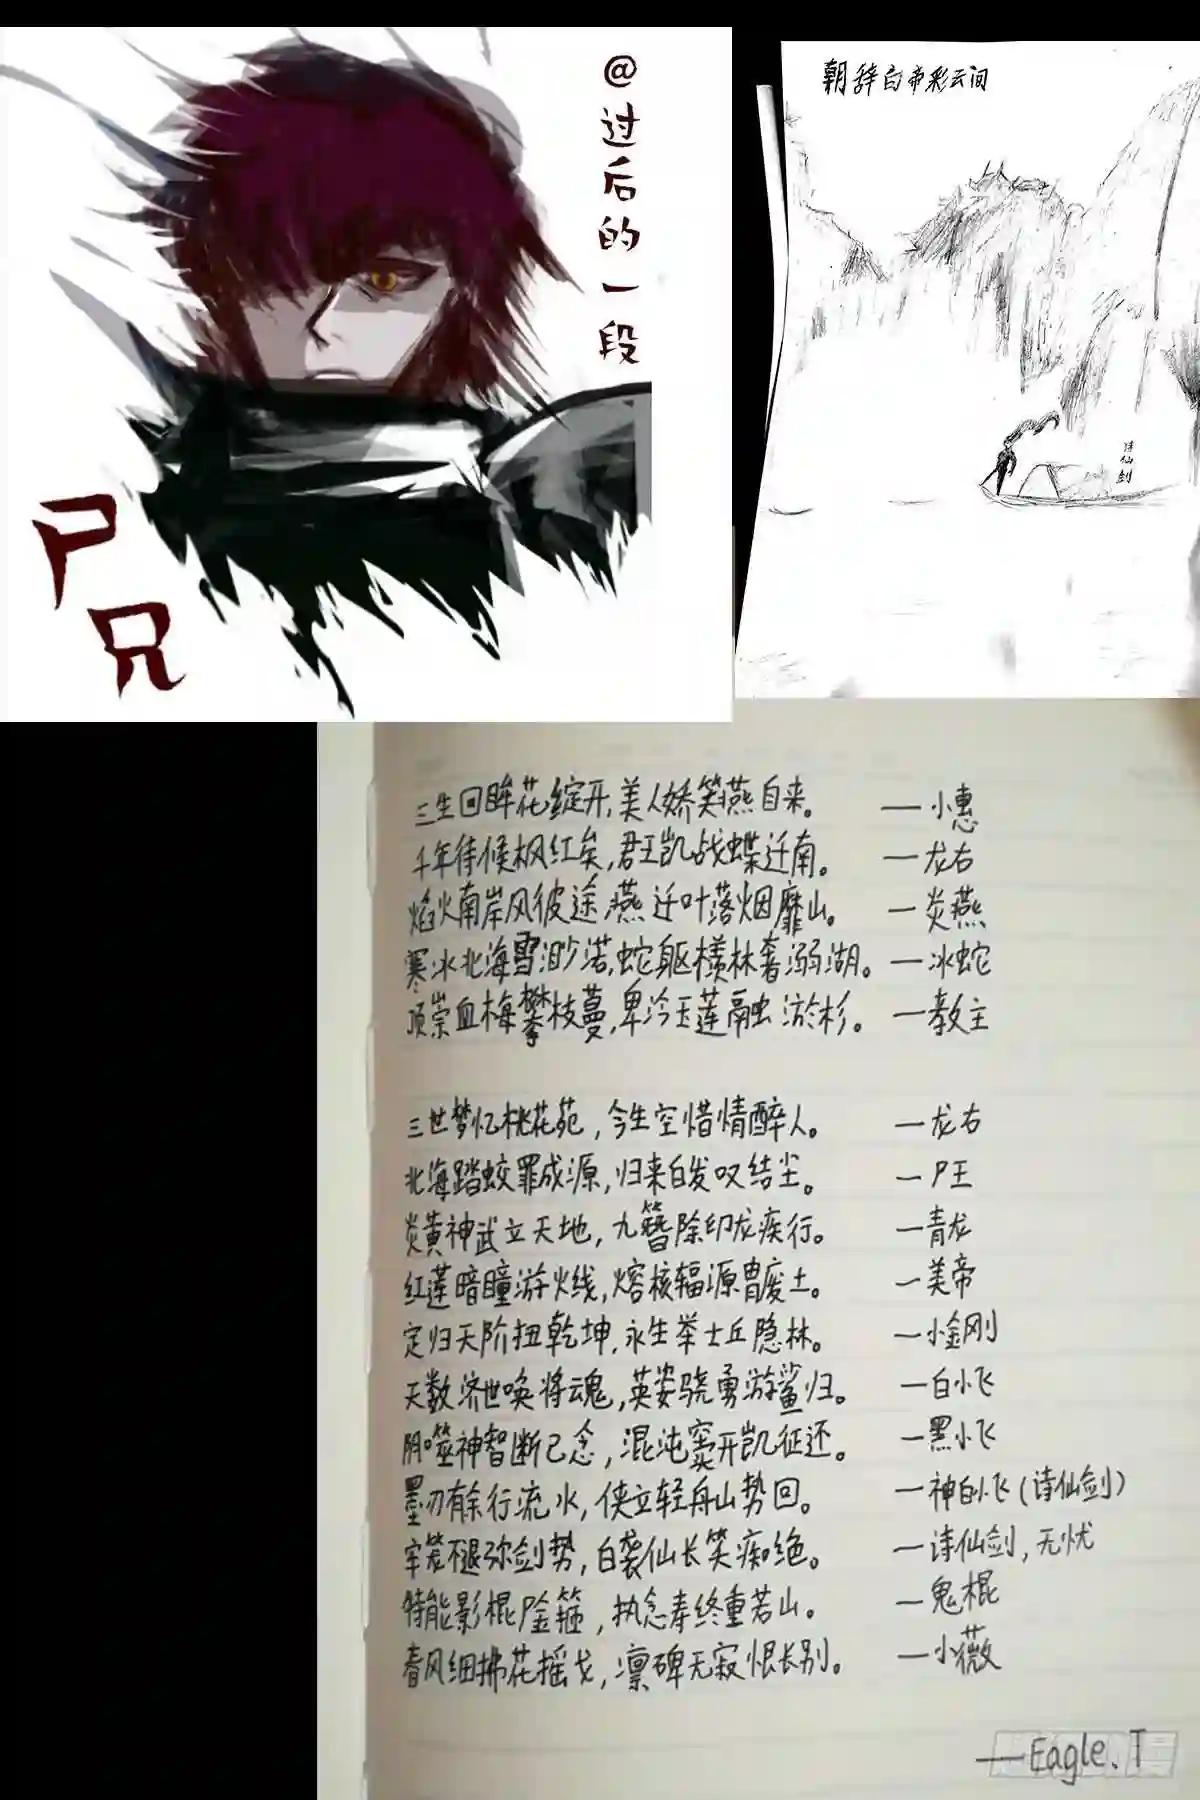 @过后的一段
尸兄
朝辞白帝彩云间
诗仙剑
三生回眸花绽开,美人娇笑燕自来。 —小惠
千年待候枫红矣,君王凯战蝶迁南。 —龙右
焰火南岸风彼途,燕迁叶落烟靡山。 —炎燕
寒冰北海雪渺茫,蛇躯横林奢溺湖。 —冰蛇
顶崇血梅攀枝蔓,卑冷玉莲融淤杉。 —教主
三世梦忆桃花苑,今生空惜情醉人。 —龙右
北海踏蛟罪成源,归来白发叹结尘。 —尸王
炎黄神武立天地,九簪除印龙疾行。 —青龙
红莲暗瞳游火线,熔核辐源胄废土。 —美帝
定归天阶扭乾坤,永生举士丘隐林。 —小金刚
天数济世唤将魂,英姿骁勇游鲨归。 —白小飞
阴噬神智断已念,混沌窦开凯征还。 —黑小飞
墨刃有余行流水,侠立轻舟山势回。 —神白小飞(诗仙剑)
牢笼不退弥剑势,白袭仙长笑痴绝。 —诗仙剑,无忧
特能影棍尸金箍,执念寿终重若山。 —鬼棍
春风细拂花摇戈,凛碑无寂恨长别。 —小薇
—Eagle.T